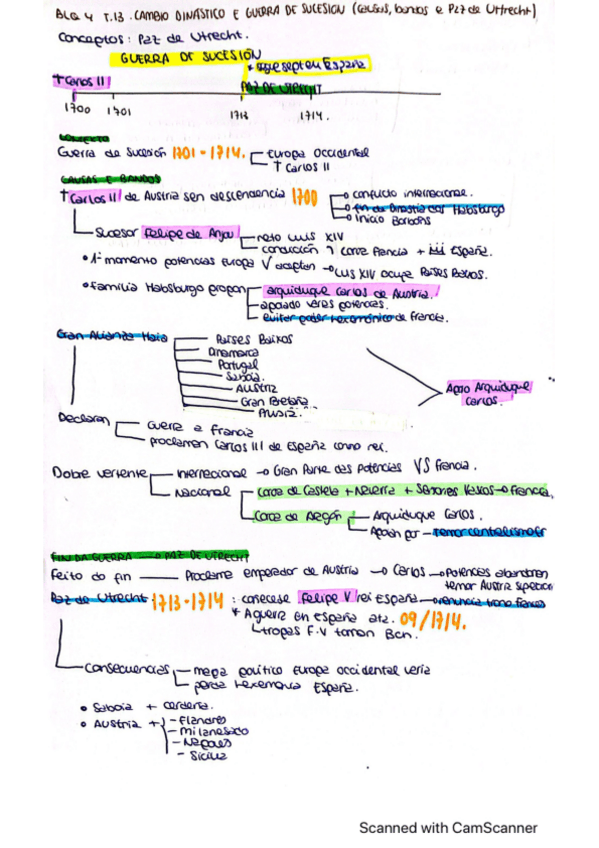 BLQ 4 T.13. CAMBIO DINÁSTICO E GUERRA DE SUCESIÓN (causas, bandos e Paz de Utrecht)
Conceptos: Paz de Utrecht.
GUERRA DE SUCESIÓN
* sept en España
† Carlos II
PAZ DE UTRECHT
1700 1701 1713 1714.
CONTEXTO
Guerra de Sucesión 1701-1714. Europa occidental
† Carlos II
CAUSAS E BANDOS
† Carlos II de Austria sen descendencia 1700 conflicto internacional.
fin da Dinastía dos Habsburgo
inicio Borbóns
Sucesor Felipe de Anjou neto Luis XIV
condición coroa Francia + España.
• 1º momento potencias Europa V aceptan → Luis XIV ocupa Países Baixos.
• familia Habsburgo propón arquiduque Carlos de Austria.
apoiado varias potencias.
evitar poder hexemónico de Francia.
Gran Alianza Haia Países Baixos
Dinamarca
Portugal
Saboia.
AUSTRIA
Gran Bretaña
Prusia.
Apoio Arquiduque Carlos.
Declaran Guerra a Francia
proclaman Carlos III de España como rei.
Dobre vertente internacional → Gran Parte das Potencias VS Francia.
Nacional Coroa de Castela + Navarra + Señores Vascos → Francia.
Coroa de Aragón Arquiduque Carlos.
Apoian por temor centralismo
FIN DA GUERRA → PAZ DE UTRECHT
Feito do fin Proclama emperador de Austria → Carlos → Potencias abandonan
temor Austria
Paz de Utrecht 1713-1714 : Felipe V rei España → renuncia trono francés
* A guerra en España ata. 09/1714.
tropas F.V toman Bcn.
Consecuencias mapa político Europa occidental varía
perda hexemonía España.
• Saboia + Cerdeña.
• Austria + - Flandres
- Milanesado
- Nápoles
- Sicilia
Scanned with CamScanner